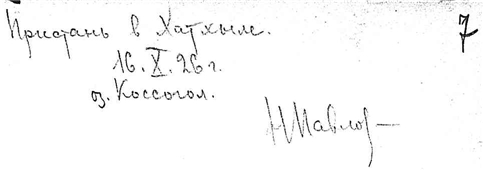 Пристань в Хатхыле. 7
16.X.26 г.
оз. Коссогол.
НПавлов